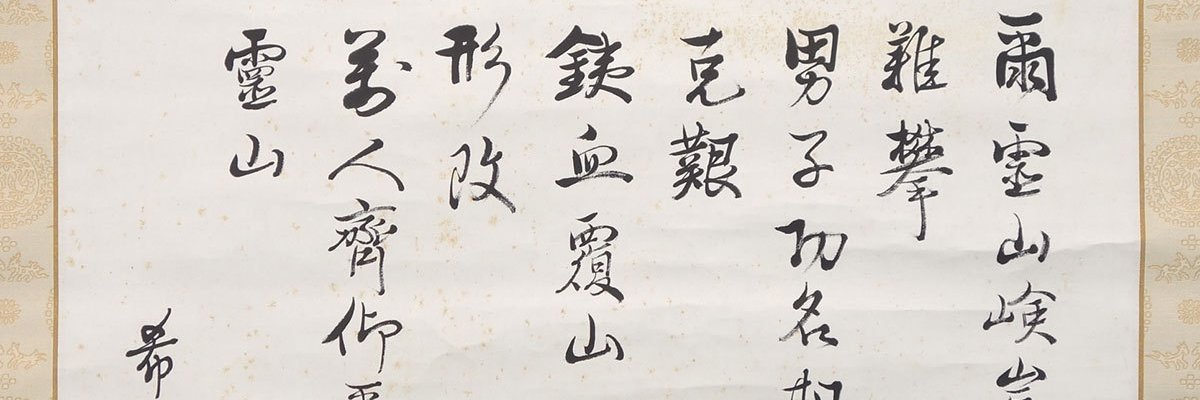 爾靈山嶮豈
難攀
男子功名
克艱
銕血覆山
形改
萬人齊仰
靈山
希